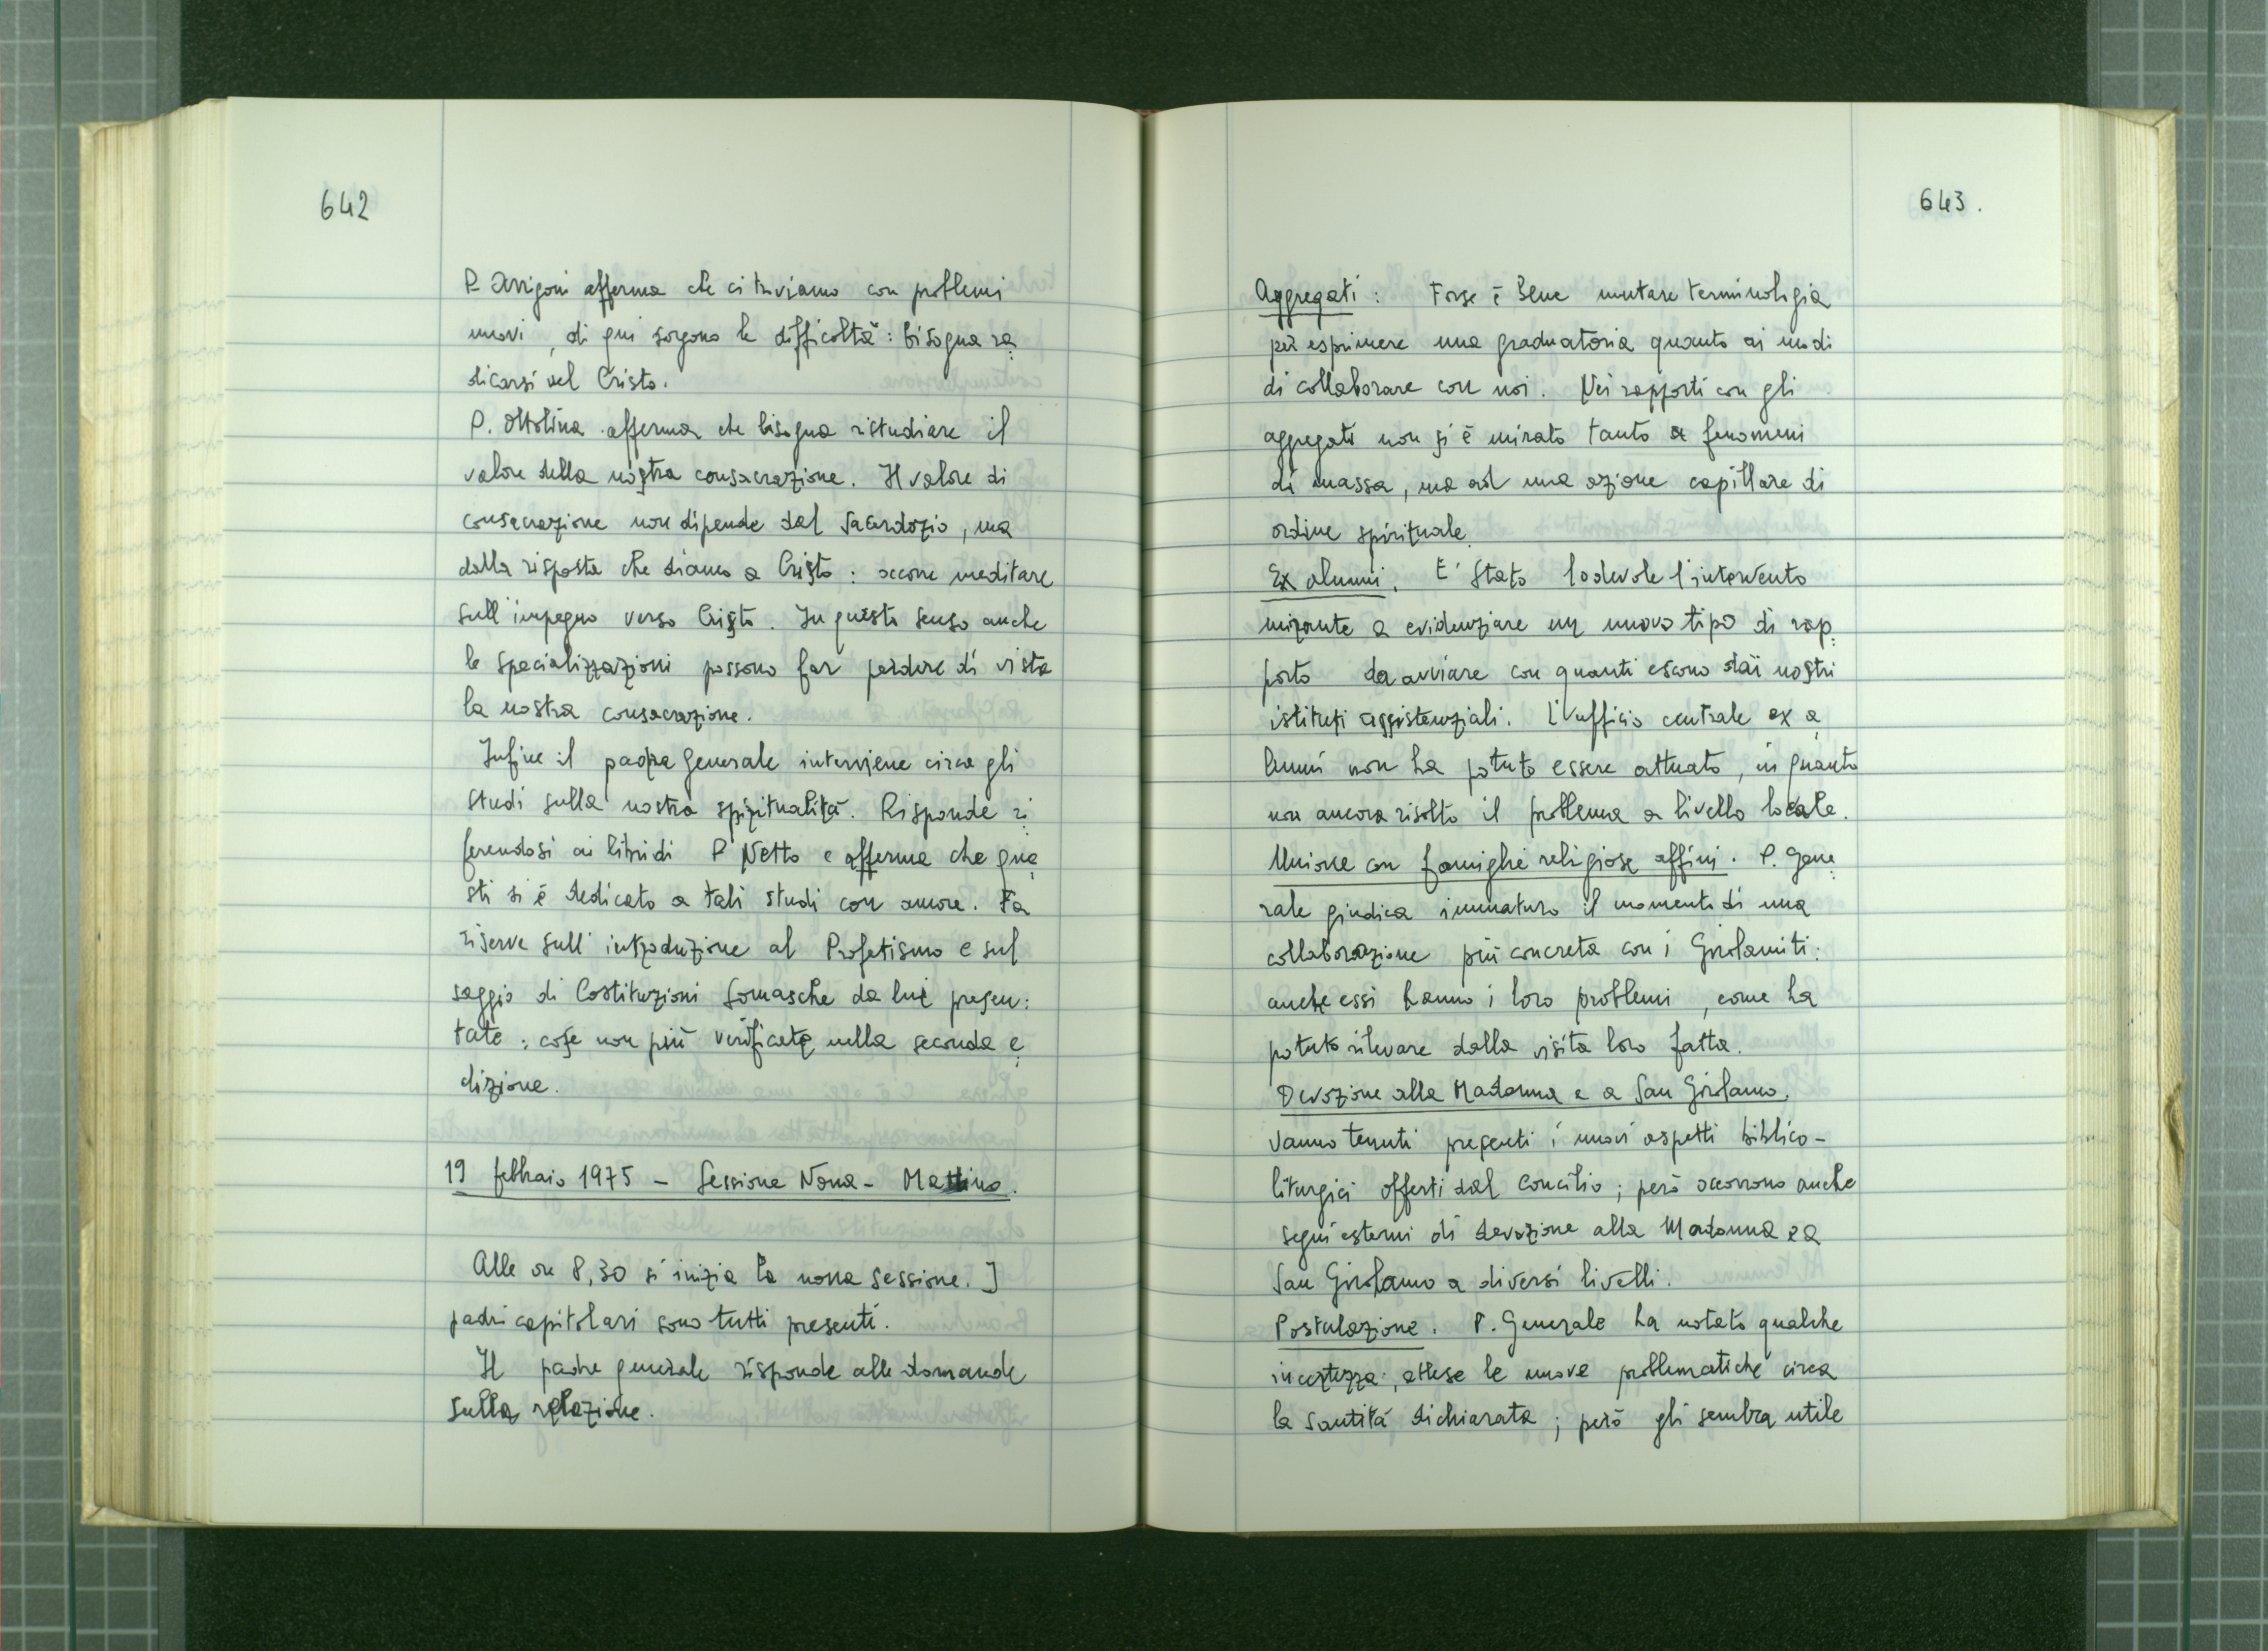 642
P. Arrigoni afferma che ci troviamo con problemi
nuovi, di qui sorgono le difficoltà: bisogna ra:
dicarsi nel Cristo.
P. Ottolina afferma che bisogna ristudiare il
valore della nostra consacrazione. Il valore di
consacrazione non dipende dal Sacerdozio, ma
dalla risposta che diamo a Cristo: occorre meditare
sull'impegno verso Cristo. In questo senso anche
le specializzazioni possono far perdere di vista
la nostra consacrazione.
Infine il padre Generale interviene circa gli
studi sulla nostra spiritualità. Risponde ri:
ferendosi ai libri di P. Netto e afferma che que:
sti si è dedicato a tali studi con amore. Fa
riserve sull'introduzione al Profetismo e sul
saggio di Costituzioni Somasche da lui presen:
tate: cose non più verificate nella seconda e:
dizione.
19 febbraio 1975 - Sessione Nona - Mattino.
Alle ore 8,30 si inizia la nona sessione. I
padri capitolari sono tutti presenti.
Il padre generale risponde alle domande
sulla relazione.
643.
Aggregati: Forse è bene mutare terminologia
per esprimere una graduatoria quanto ai modi
di collaborare con noi. Nei rapporti con gli
aggregati non si è mirato tanto a fenomeni
di massa, ma ad una azione capillare di
ordine spirituale.
Ex alunni. E' stato lodevole l'intervento
mirante a evidenziare un nuovo tipo di rap:
porto da avviare con quanti escono dai nostri
istituti assistenziali. L'ufficio centrale ex a:
lunni non ha potuto essere attuato, in quanto
non ancora risolto il problema a livello locale.
Unione con famiglie religiose affini. P. Gene:
rale giudica immaturo il momento di una
collaborazione più concreta con i Girolamiti:
anche essi hanno i loro problemi, come ha
potuto rilevare dalla visita loro fatta.
Devozione alla Madonna e a San Girolamo.
Vanno tenuti presenti i nuovi aspetti biblico-
liturgici offerti dal Concilio; però occorrono anche
segni esterni di devozione alla Madonna e a
San Girolamo a diversi livelli.
Postulazione. P. Generale ha notato qualche
incertezza, attese le nuove problematiche circa
la santità dichiarata; però gli sembra utile